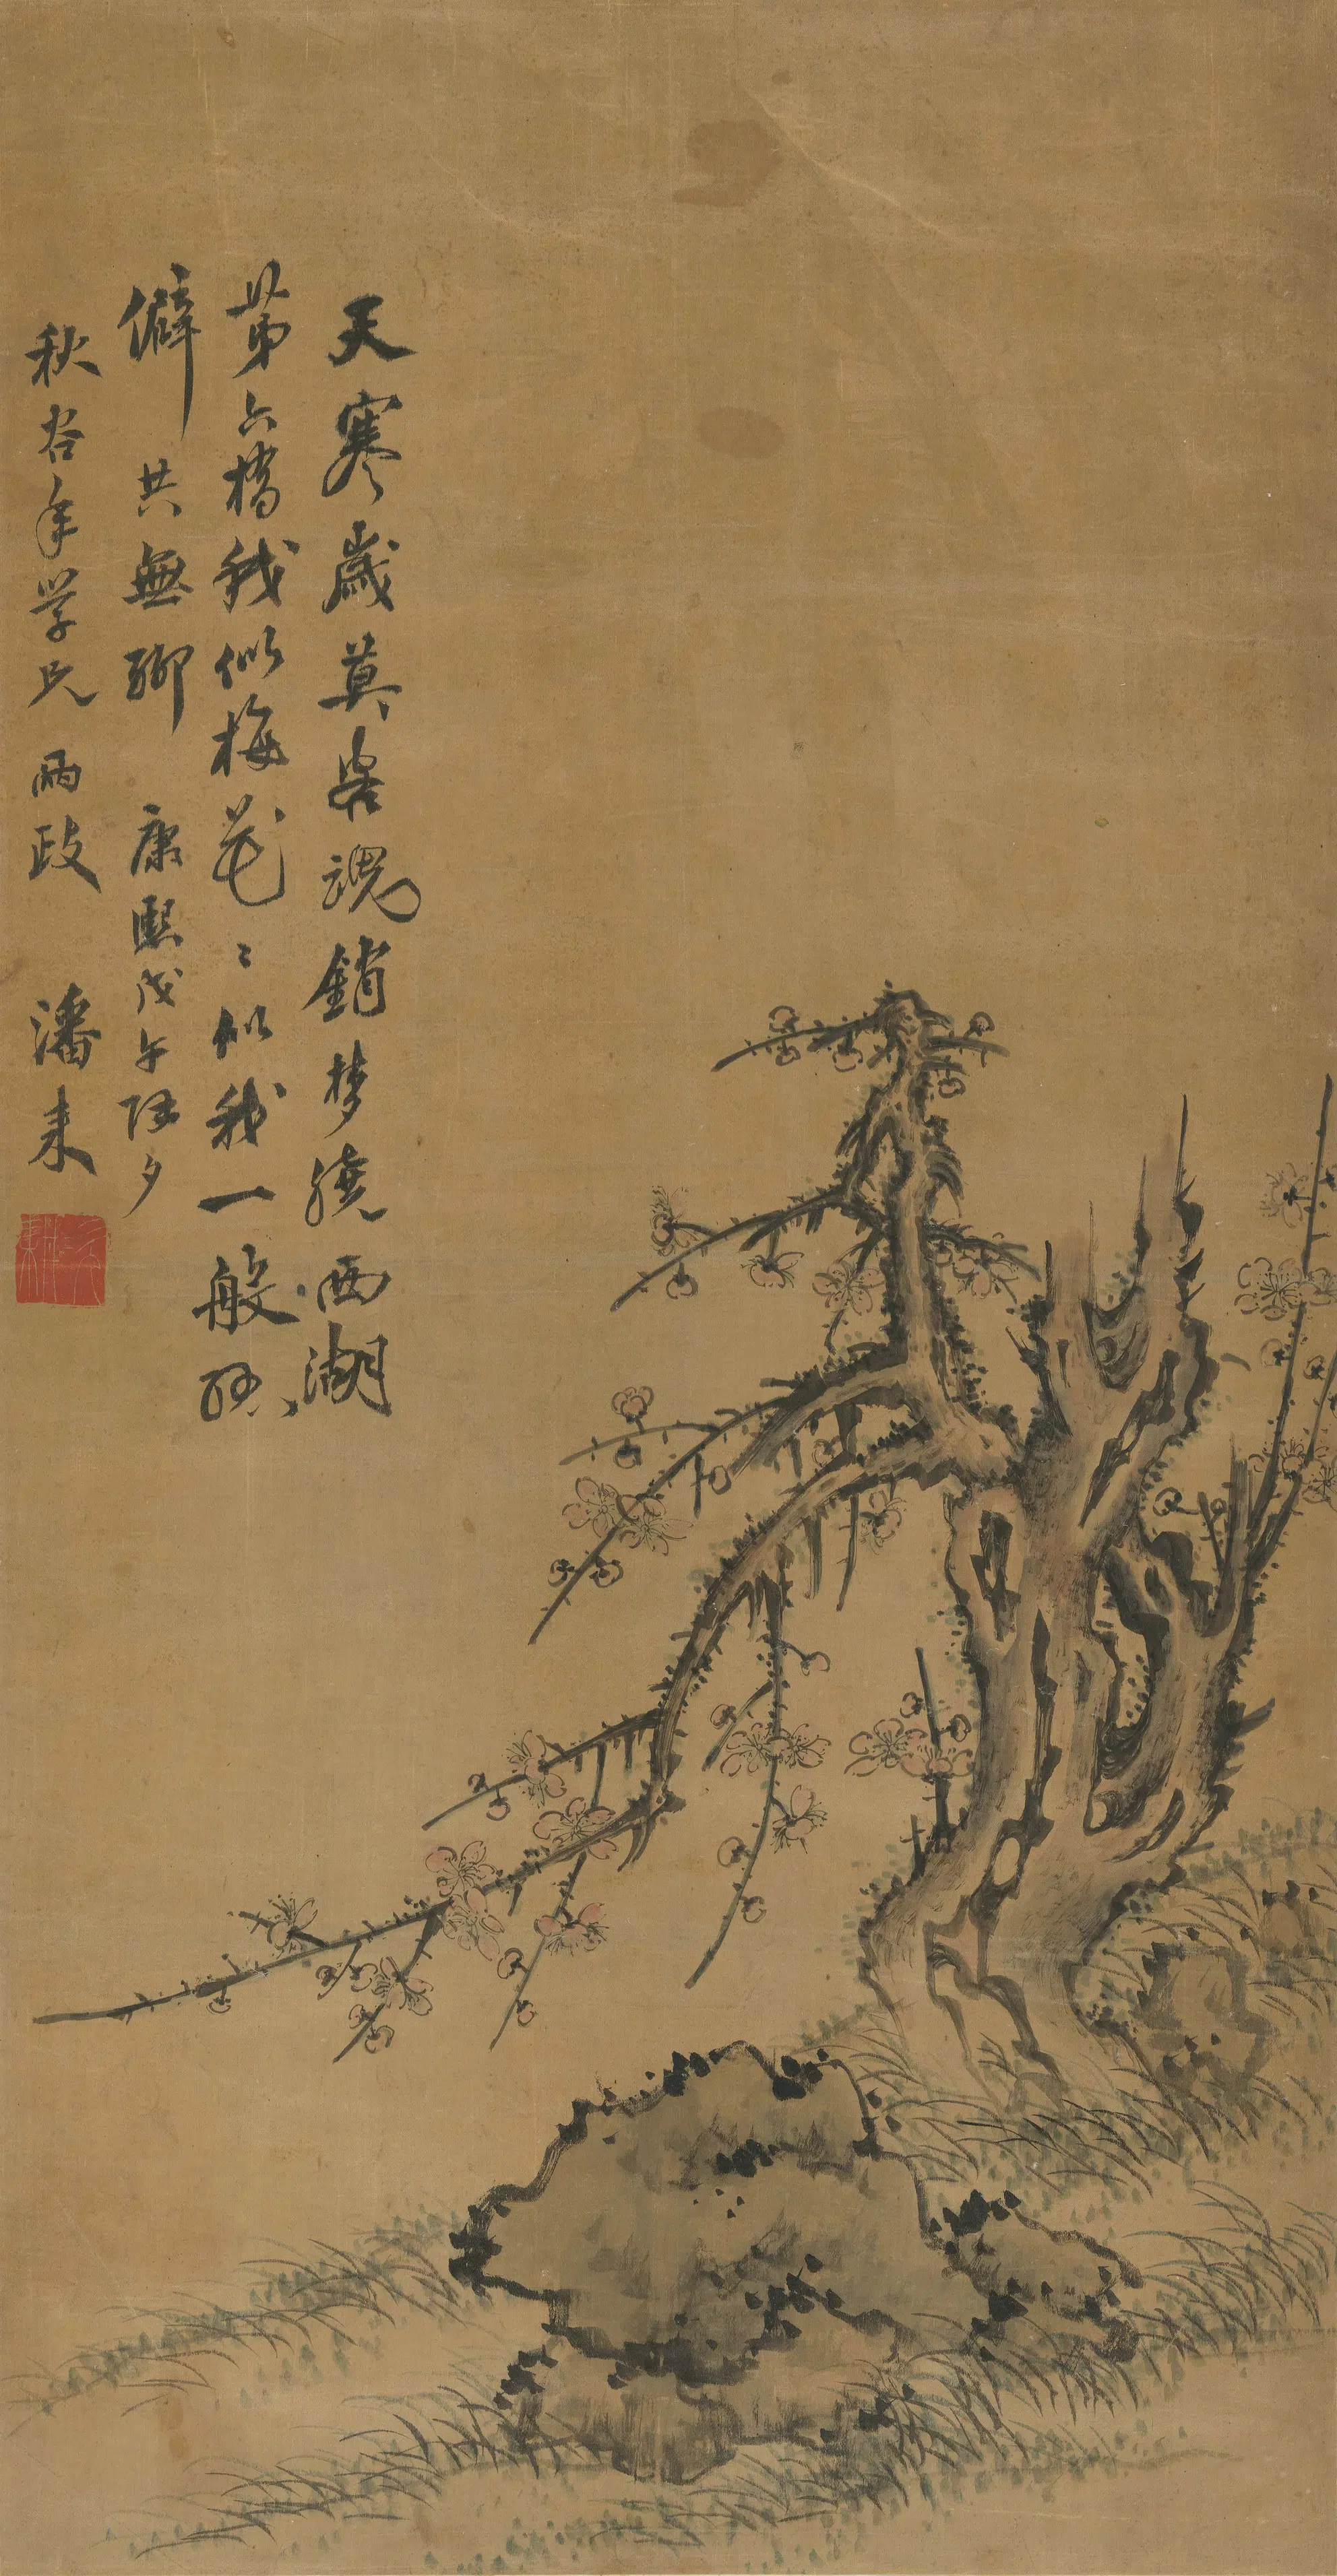 天寒歲莫客魂銷梦繞西湖
苐六橋我似梅花〻似我一般孤
僻共無聊 康熙戊午除夕
秋谷年学兄兩政 潘耒